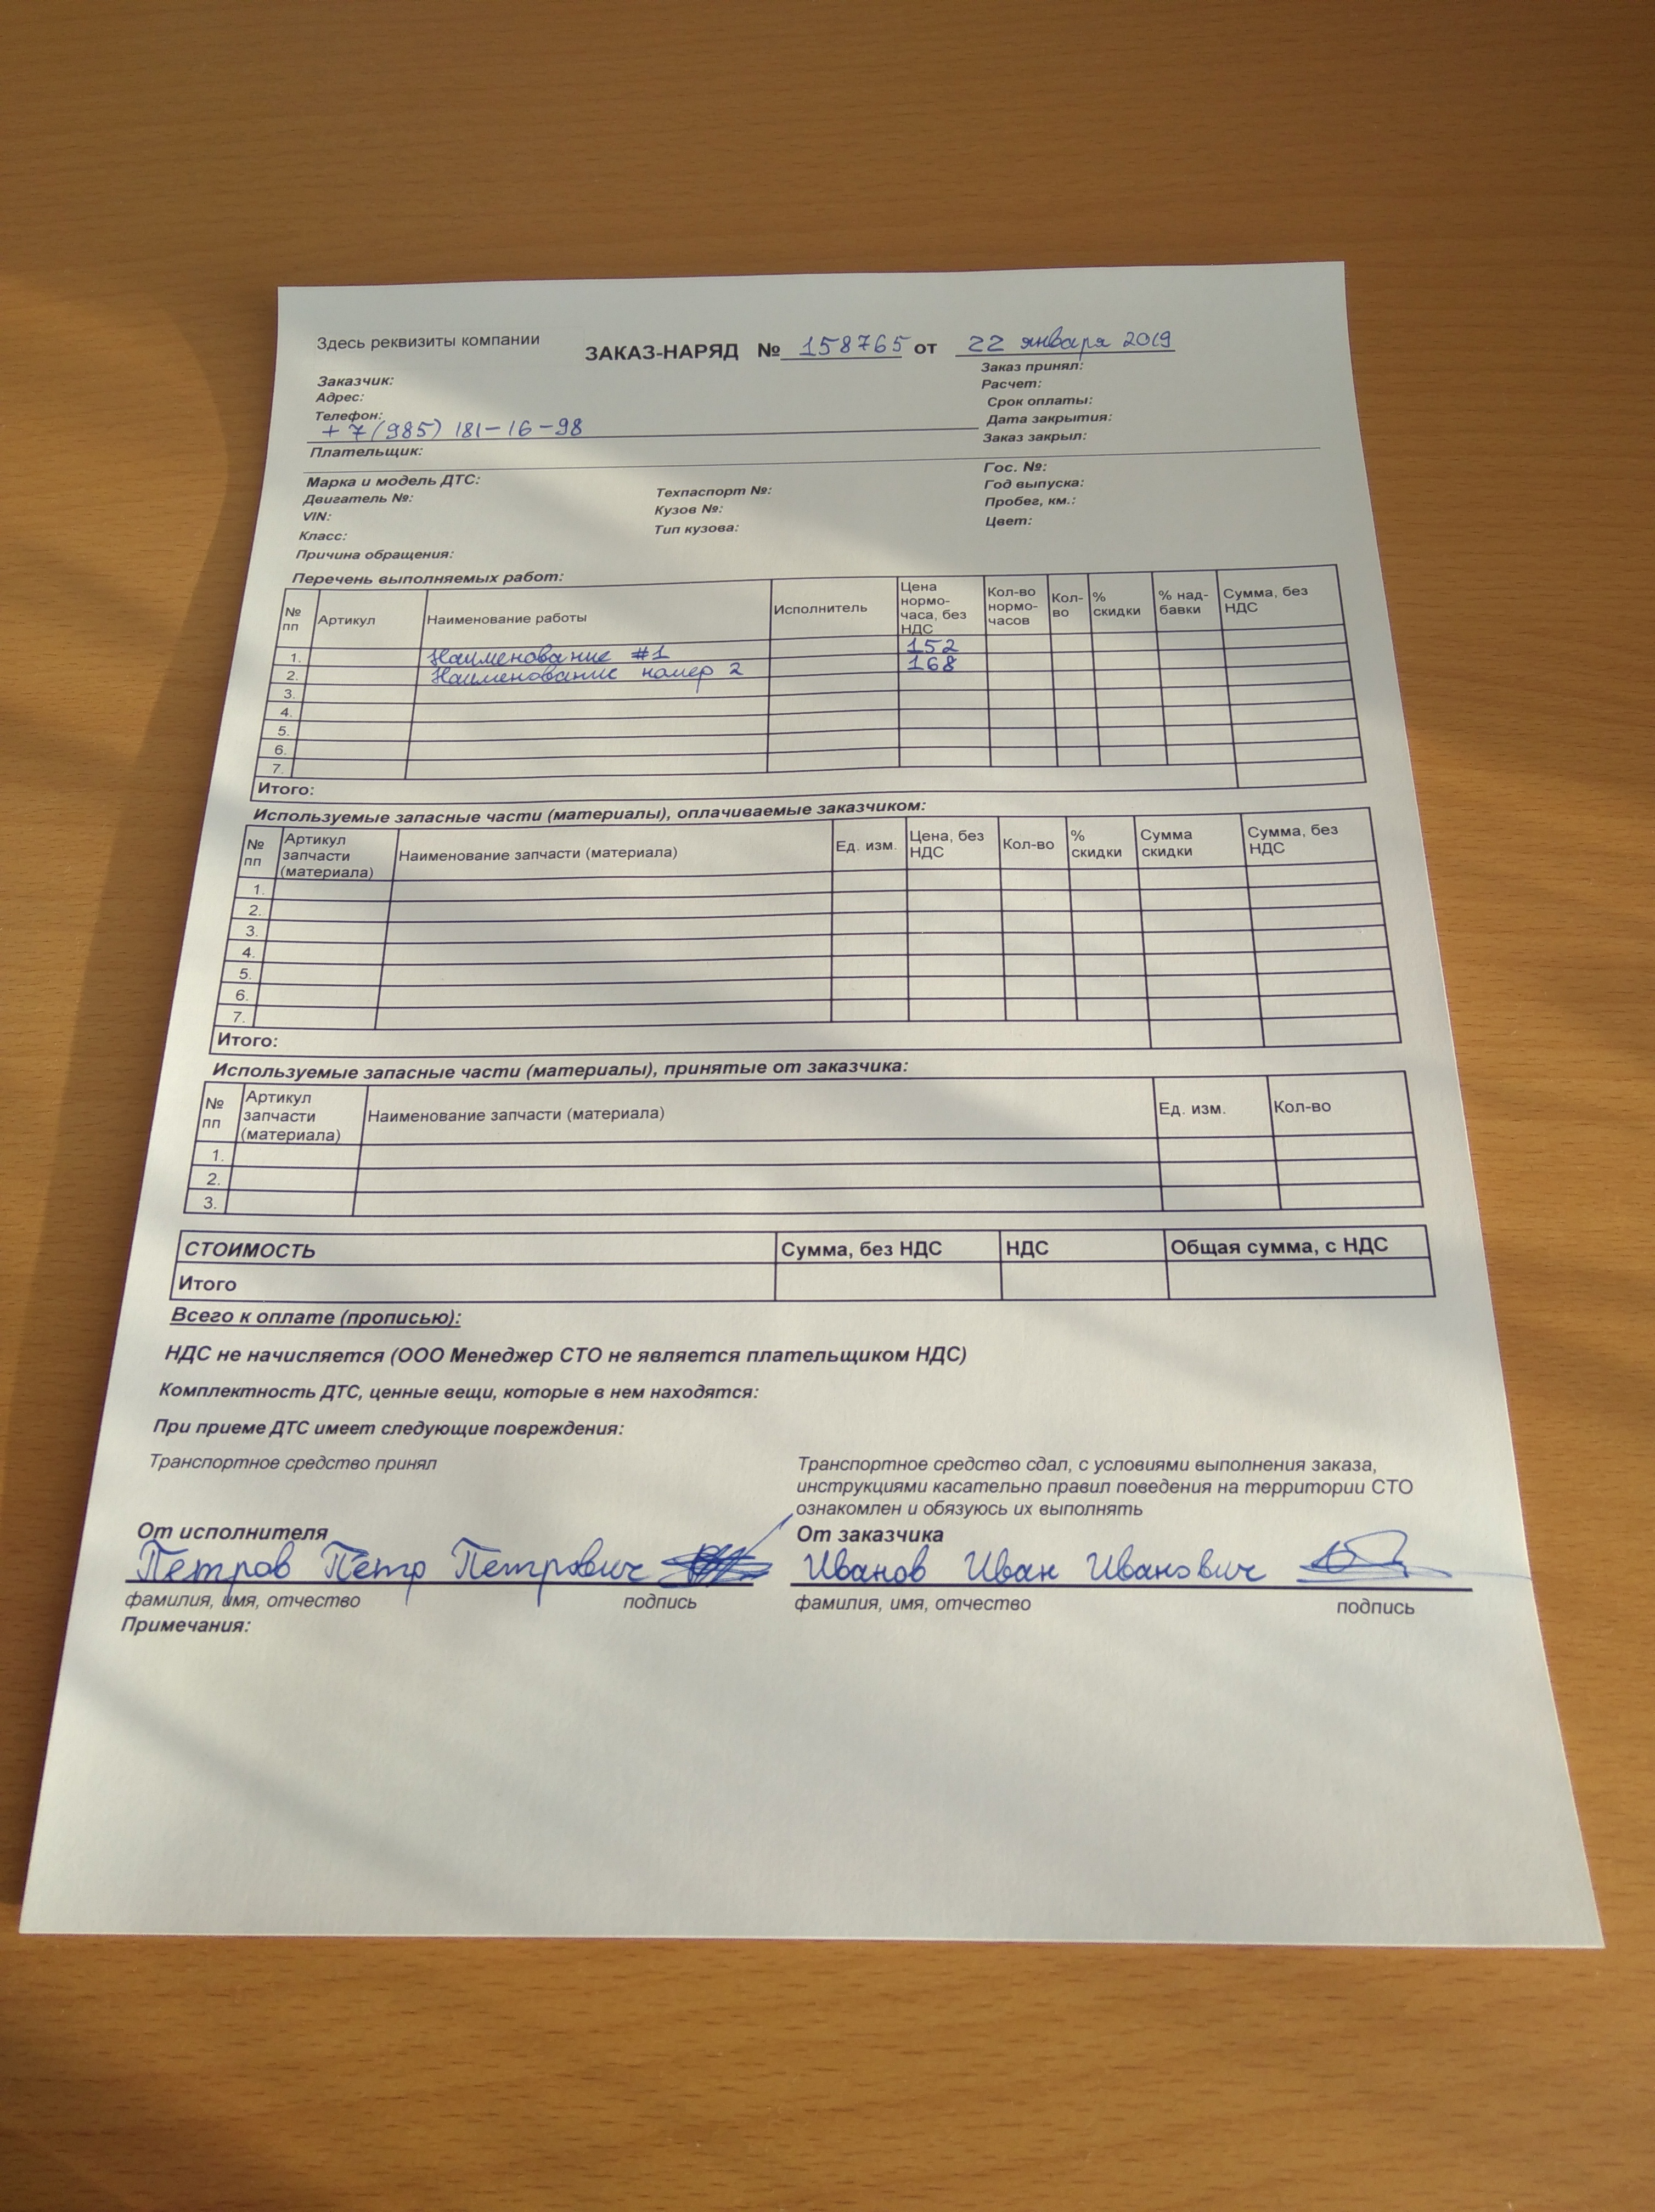 Здесь реквизиты компании
ЗАКАЗ-НАРЯД № 158765 от 22 января 2019
Заказчик:
Адрес:
Телефон:
+7(985) 181-16-98
Плательщик:
Заказ принял:
Расчет:
Срок оплаты:
Дата закрытия:
Заказ закрыл:
Марка и модель ДТС:
Двигатель №:
VIN:
Класс:
Причина обращения:
Техпаспорт №:
Кузов №:
Тип кузова:
Гос. №:
Год выпуска:
Пробег, км.:
Цвет:
Перечень выполняемых работ:
№ пп Артикул Наименование работы Исполнитель Цена нормо-часа, без НДС Кол-во нормо-часов Кол-во % скидки % над-бавки Сумма, без НДС
1. Наименование #1 152
2. Наименование номер 2 168
3.
4.
5.
6.
7.
Итого:
Используемые запасные части (материалы), оплачиваемые заказчиком:
№ пп Артикул запчасти (материала) Наименование запчасти (материала) Ед. изм. Цена, без НДС Кол-во % скидки Сумма скидки Сумма, без НДС
1.
2.
3.
4.
5.
6.
7.
Итого:
Используемые запасные части (материалы), принятые от заказчика:
№ пп Артикул запчасти (материала) Наименование запчасти (материала) Ед. изм. Кол-во
1.
2.
3.
СТОИМОСТЬ Сумма, без НДС НДС Общая сумма, с НДС
Итого
Всего к оплате (прописью):
НДС не начисляется (ООО Менеджер СТО не является плательщиком НДС)
Комплектность ДТС, ценные вещи, которые в нем находятся:
При приеме ДТС имеет следующие повреждения:
Транспортное средство принял
Транспортное средство сдал, с условиями выполнения заказа,
инструкциями касательно правил поведения на территории СТО
ознакомлен и обязуюсь их выполнять
От исполнителя
Петров Петр Петрович
фамилия, имя, отчество подпись
От заказчика
Иванов Иван Иванович
фамилия, имя, отчество подпись
Примечания: